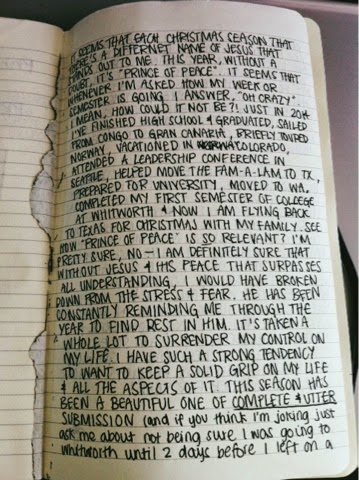 SEEMS THAT EACH CHRISTMAS SEASON THAT
THERE'S A DIFFERNET NAME OF JESUS THAT
STANDS OUT TO ME. THIS YEAR, WITHOUT A
DOUBT, IT'S "PRINCE OF PEACE". IT SEEMS THAT
WHENEVER I'M ASKED HOW MY WEEK OR
SEMESTER IS GOING I ANSWER, "OH CRAZY"
I MEAN, HOW COULD IT NOT BE?! JUST IN 2014
I'VE FINISHED HIGH SCHOOL & GRADUATED, SAILED
FROM CONGO TO GRAN CANARIA, BRIEFLY TOURED
NORWAY, VACATIONED IN COLORADO,
ATTENDED A LEADERSHIP CONFERENCE IN
SEATTLE, HELPED MOVE THE FAM-A-LAM TO TX,
PREPARED FOR UNIVERSITY, MOVED TO WA,
COMPLETED MY FIRST SEMESTER OF COLLEGE
AT WHITWORTH & NOW I AM FLYING BACK
TO TEXAS FOR CHRISTMAS WITH MY FAMILY. SEE
HOW "PRINCE OF PEACE" IS SO RELEVANT? I'M
PRETTY SURE, NO - I AM DEFINITELY SURE THAT
WITHOUT JESUS & HIS PEACE THAT SURPASSES
ALL UNDERSTANDING, I WOULD HAVE BROKEN
DOWN FROM THE STRESS & FEAR. HE HAS BEEN
CONSTANTLY REMINDING ME THROUGH THE
YEAR TO FIND REST IN HIM. IT'S TAKEN A
WHOLE LOT TO SURRENDER MY CONTROL ON
MY LIFE. I HAVE SUCH A STRONG TENDENCY
TO WANT TO KEEP A SOLID GRIP ON MY LIFE
& ALL THE ASPECTS OF IT. THIS SEASON HAS
BEEN A BEAUTIFUL ONE OF COMPLETE & UTTER
SUBMISSION (and if you think I'm joking just
ask me about not being sure I was going to
whitworth until 2 days before I left on a